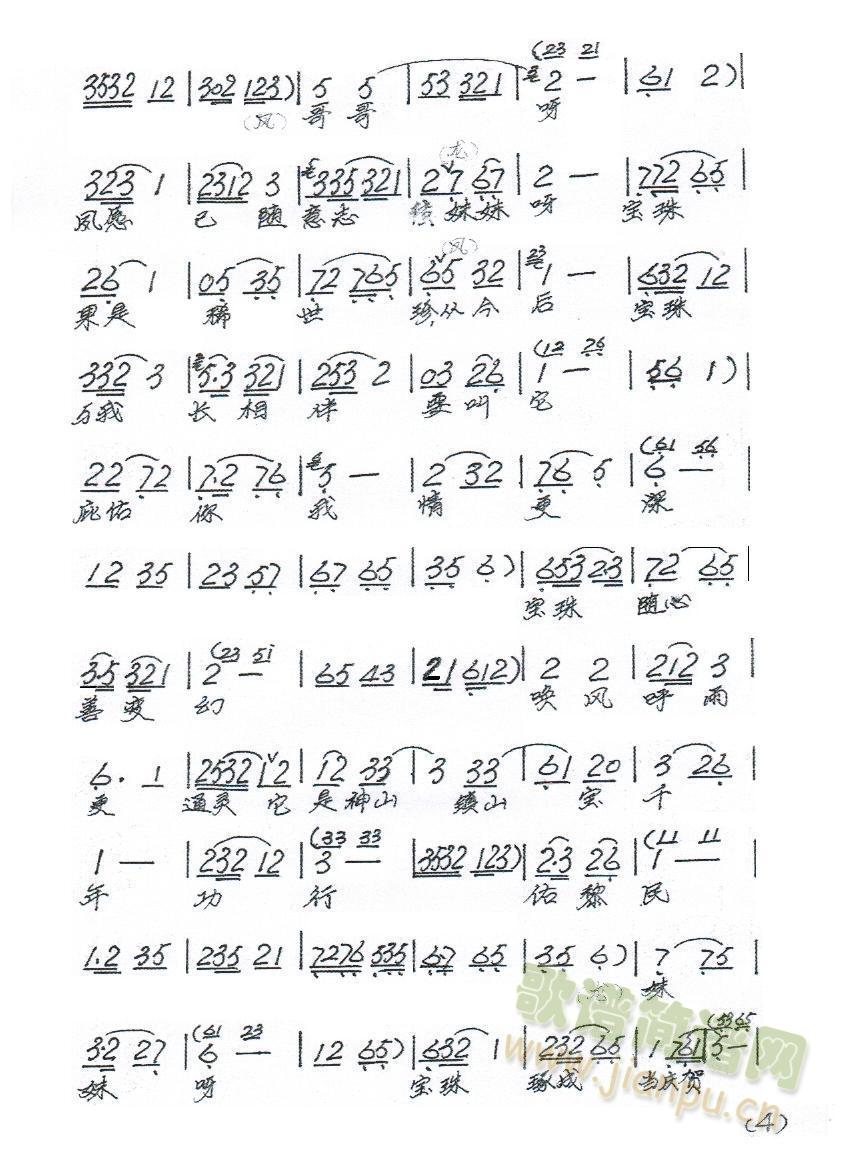 3532 12 | 302 123) | 5 5 | 53 321 | 2 — (23 21 | 61 2) |
(凤) 哥 哥 呀
323 1 | 2312 3 | 335 321 | 27 67 | 2 — | 772 65 |
夙愿 已 随 意志 (龙) 妹妹 呀 宝珠
26 1 | 05 35 | 72 765 | 65 32 | 1 — | 632 12 |
果是 稀 世 珍, (凤) 从今 后 宝珠
332 3 | 5·3 321 | 253 2 | 03 26 | 1 — (12 26 | 56 1) |
与我 长 相 伴 要叫 它
22 72 | 7·2 76 | 5 — | 2 32 | 76 5 | 6 — (61 56 |
庇佑 你 我 情 更 深
12 35 | 23 57 | 67 65 | 35 6) | 653 2·3 | 72 65 |
宝珠 随心
3·5 321 | 2 — (23 51 | 65 43 | 21 612) | 2 2 | 212 3 |
善变 幻 唤 风 呼 雨
6· 1 | 2532 12 | 12 33 | 3 33 | 61 20 | 3 26 |
更 通灵 它 是神山 镇山 宝 千
1 — | 232 12 | 3 — (33 33 | 3532 123) | 2·3 26 | 1 — (11 11 |
年 功 行 佑 黎 民
1·2 35 | 235 21 | 7276 535 | 6·7 65 | 35 6) | 7 75 |
(龙) 妹
3·2 27 | 6 — (61 23 | 12 65) | 632 1 | 232 65 | 1 761 | 5 — (5365 |
妹 呀 宝珠 琢成 当庆贺
歌谱简谱网
www.jianpu.cn
(4)